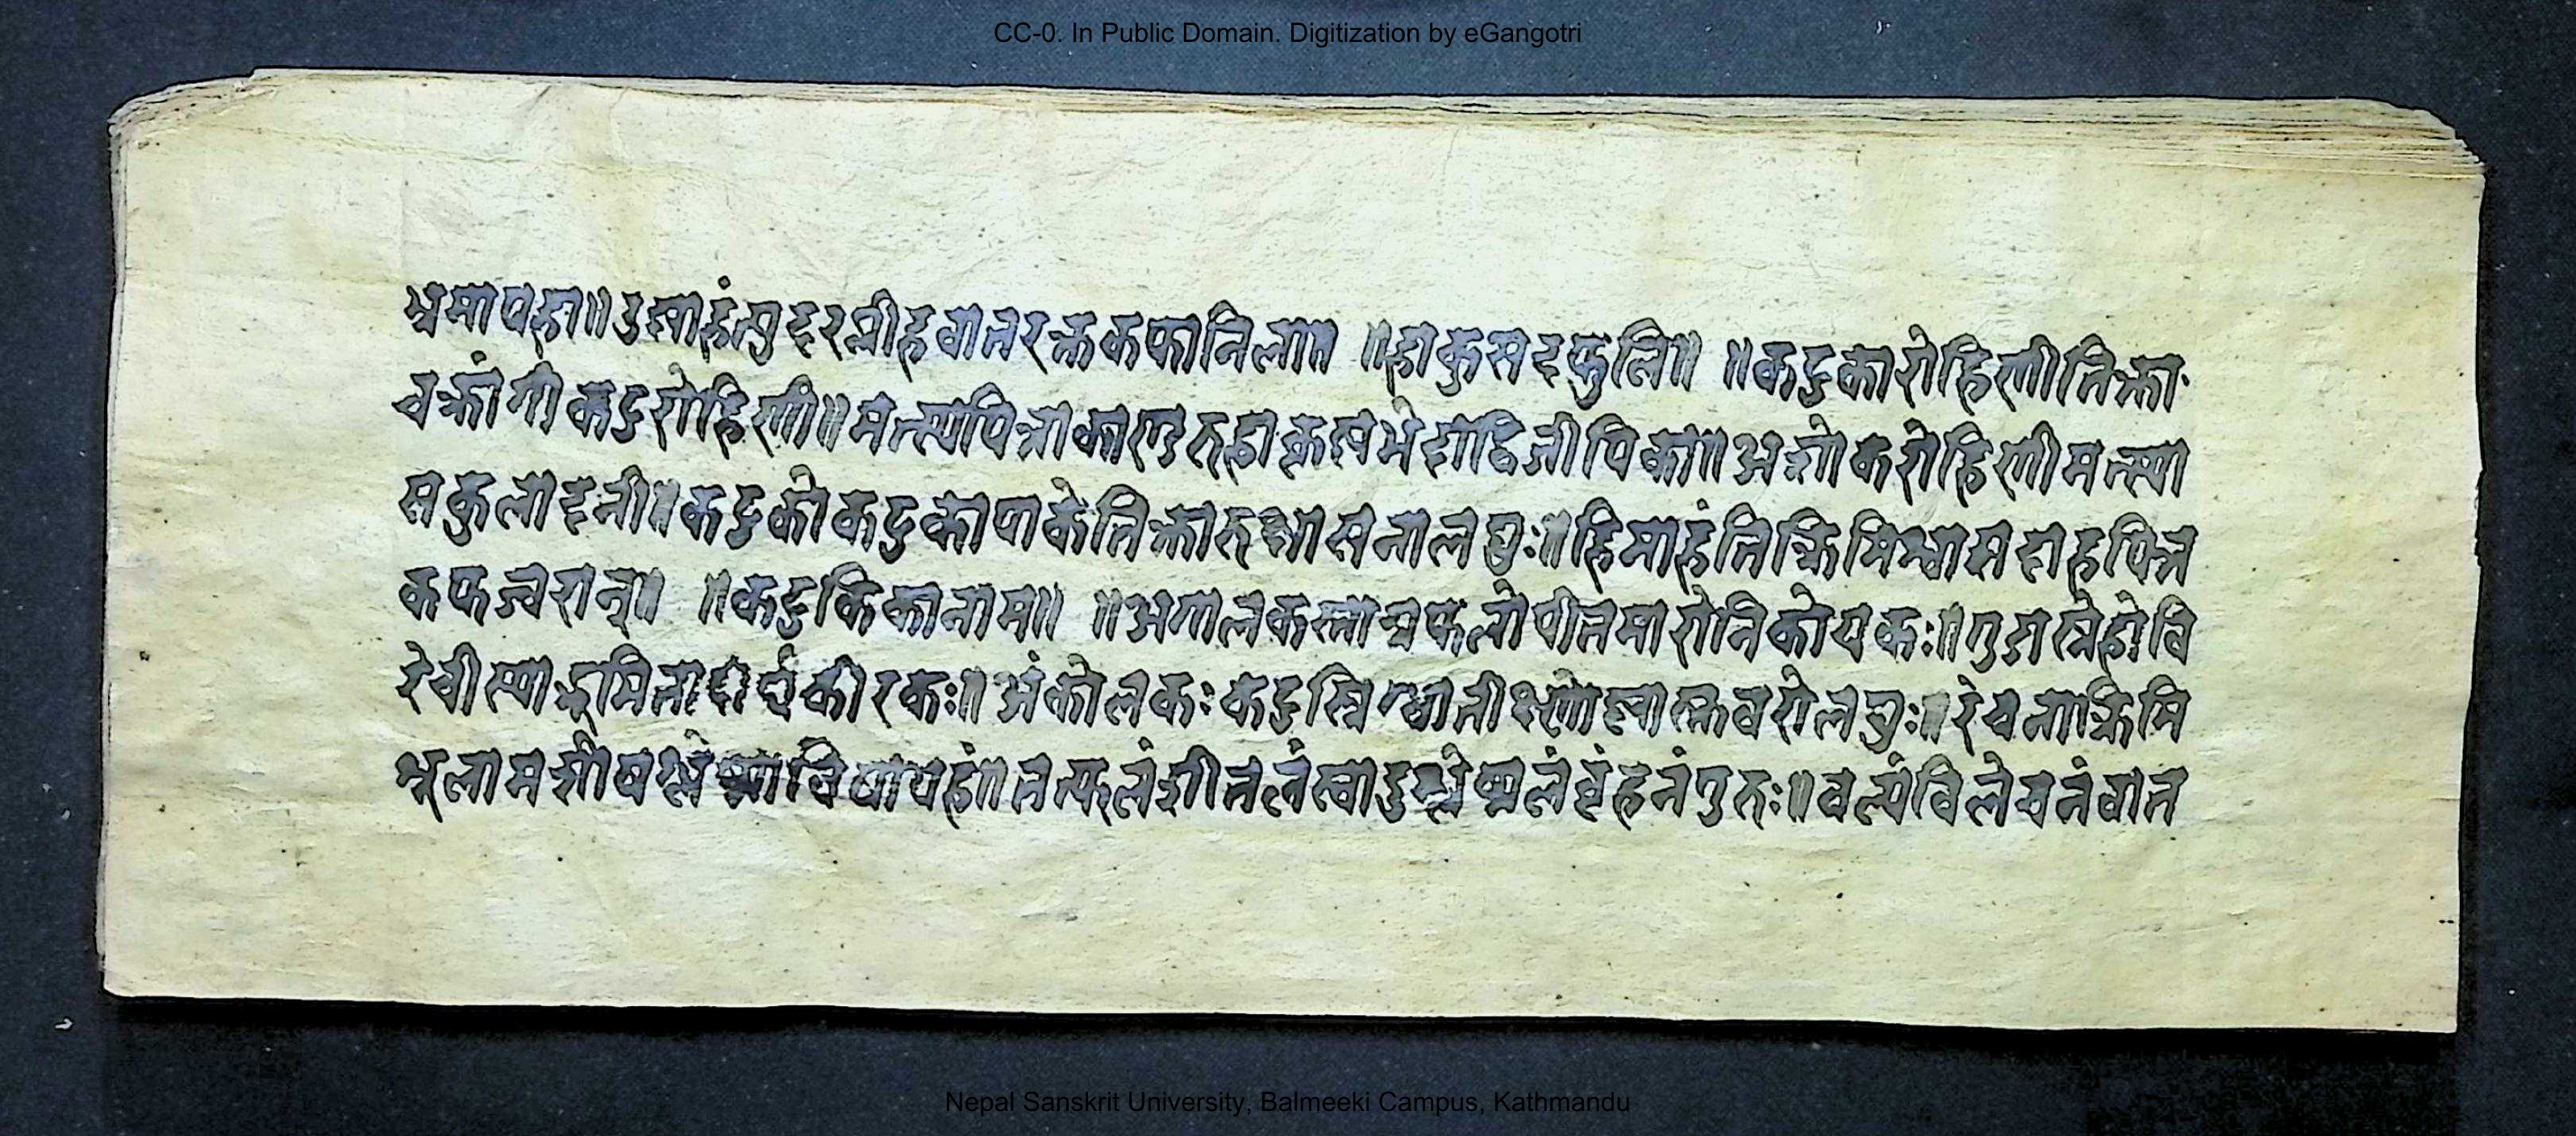 CC-0. In Public Domain. Digitization by eGangotri
श्रमापहा॥ कफानिला॥ ॥ ॥कटुकारोहिणीतिक्ता
चक्रांगी कटुरोहिणी॥मत्स्यपित्ताकाण्डरुहाकृष्णभेदाद्विजीपिका॥अशोकरोहिणीमत्स्या
सकुलादनी॥कटुकीकटुकापाकेतिक्तारूक्षासनालघुः॥हिमाहंतिक्रिमिश्वासदाहपित्त
कफज्वरान्॥ ॥कटुकिकानाम॥ ॥अंगोलकस्ताम्रफलोपीतसारोनिकोचकः॥गुप्तस्नेहोवि
रेचीस्याद्भूमितो दीर्घकीरकः॥अंकोलकः कटुस्निग्धातीक्ष्णोष्णस्तुवरोलघुः॥रेचनाक्रिमि
शूलाम विषापहः॥तत्फलंशीतलंस्वादुश्लेष्मलंबृंहनंगुरुः॥बल्यंविलेचनंवात
Nepal Sanskrit University, Balmeeki Campus, Kathmandu